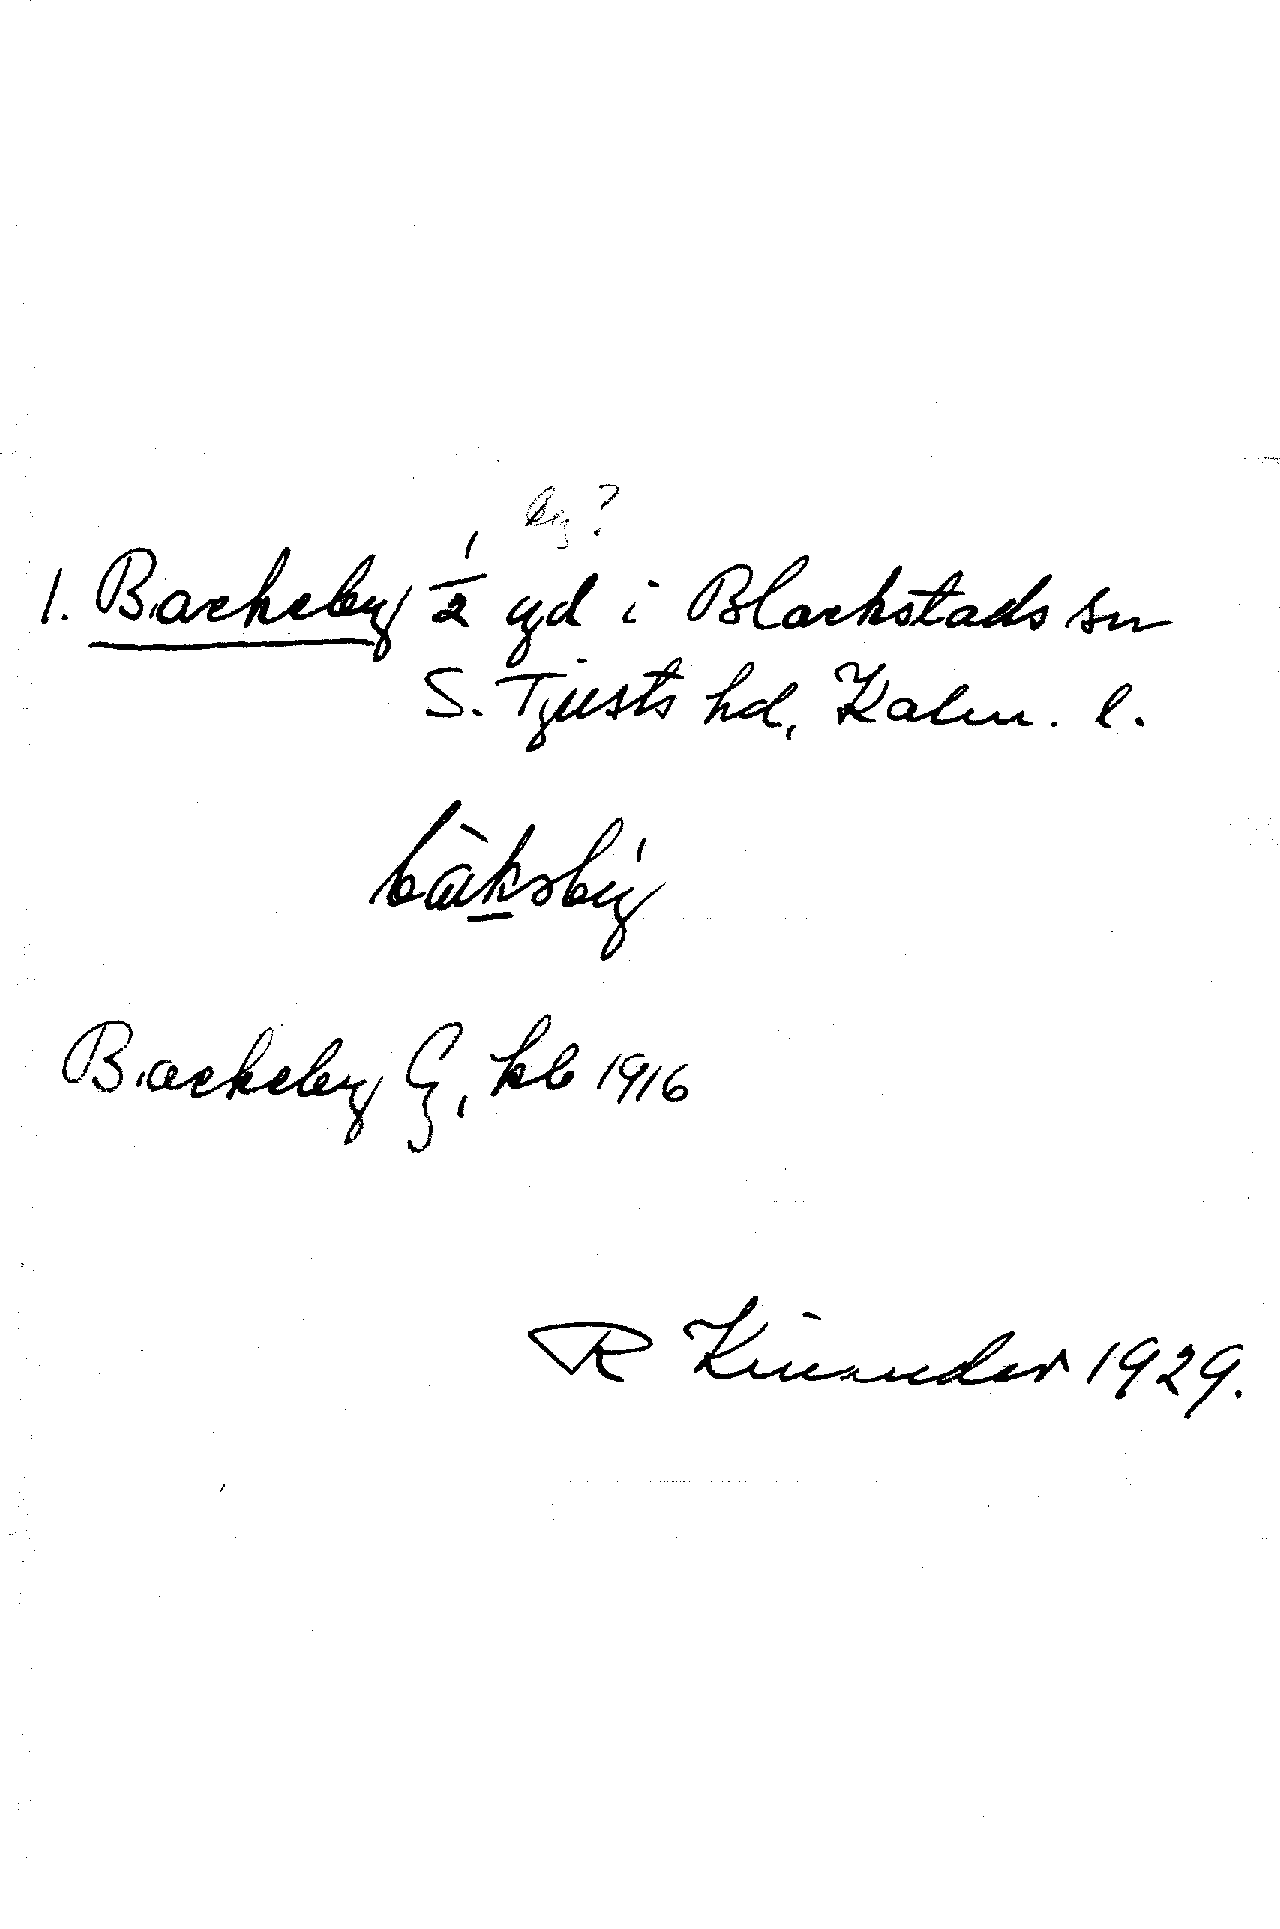 by?
1. Backeby 1/2 gd i Blackstads sn
S. Tjusts hd, Kalm. l.
Backeby G, kb 1916
R Kinander 1929.